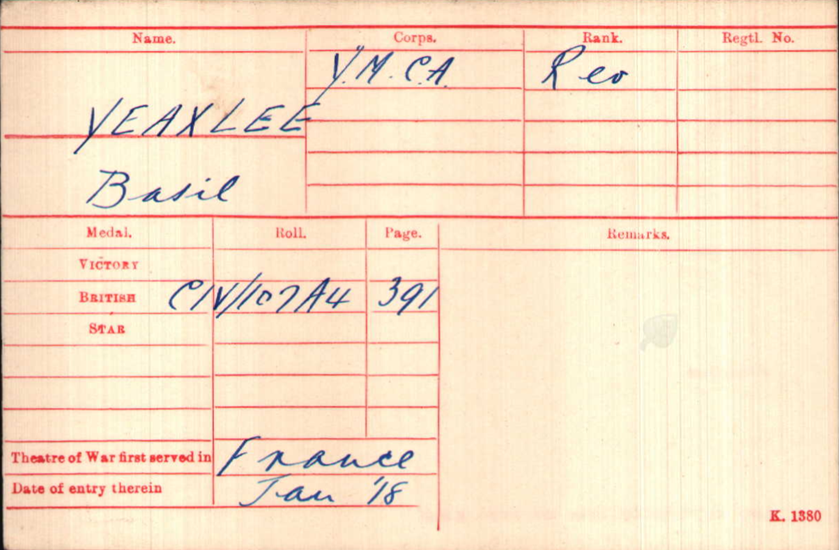 Name. Corps. Rank. Regtl. No.
Y.M.C.A. Rev
YEAXLEE
Basil
Medal. Roll. Page. Remarks.
VICTORY
BRITISH CIV/107A4 391
STAR
Theatre of War first served in France
Date of entry therein Jan '18
K. 1380